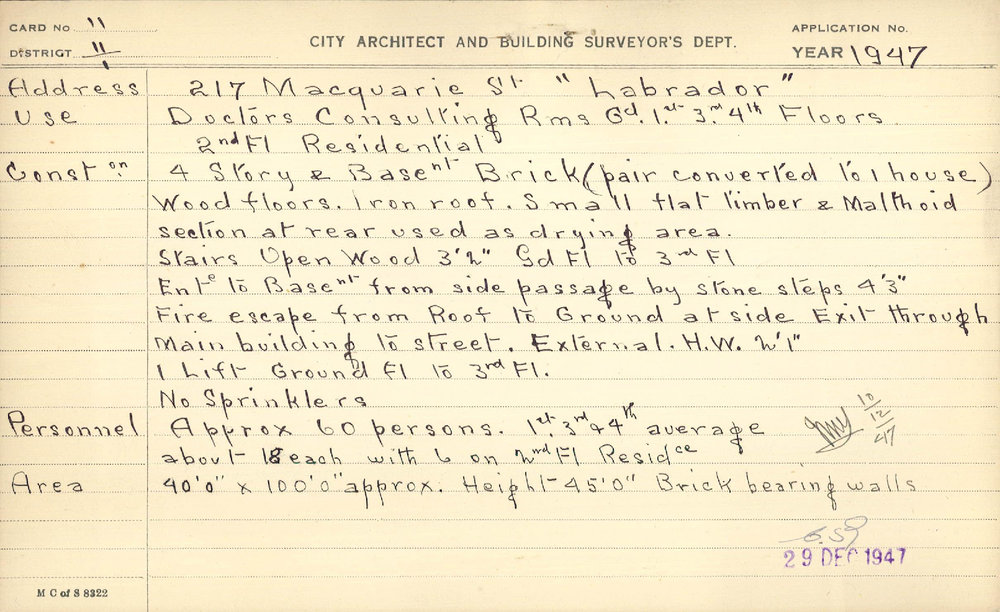 CARD NO. 11
DISTRICT 11/1
CITY ARCHITECT AND BUILDING SURVEYOR'S DEPT.
APPLICATION NO.
YEAR 1947
Address 217 Macquarie St "Labrador"
Use Doctors Consulting Rms Gd. 1st 3rd 4th Floors
2nd Fl Residential
Const on. 4 Story & Basent Brick (pair converted to 1 house)
Wood floors. Iron roof. Small flat timber & Malthoid
section at rear used as drying area.
Stairs Open Wood 3'2" Gd Fl to 3rd Fl
Ente to Basent from side passage by stone steps 4'3"
Fire escape from Roof to Ground at side Exit through
Main building to street. External. H.W. 2'1"
1 Lift Ground Fl to 3rd Fl.
No Sprinklers
Personnel Approx 60 persons. 1st. 3rd & 4th average
about 18 each with 6 on 2nd Fl Residce
10/12/47
Area 40'0" x 100'0" approx. Height 45'0" Brick bearing walls
29 DEC 1947
M C of S 8322